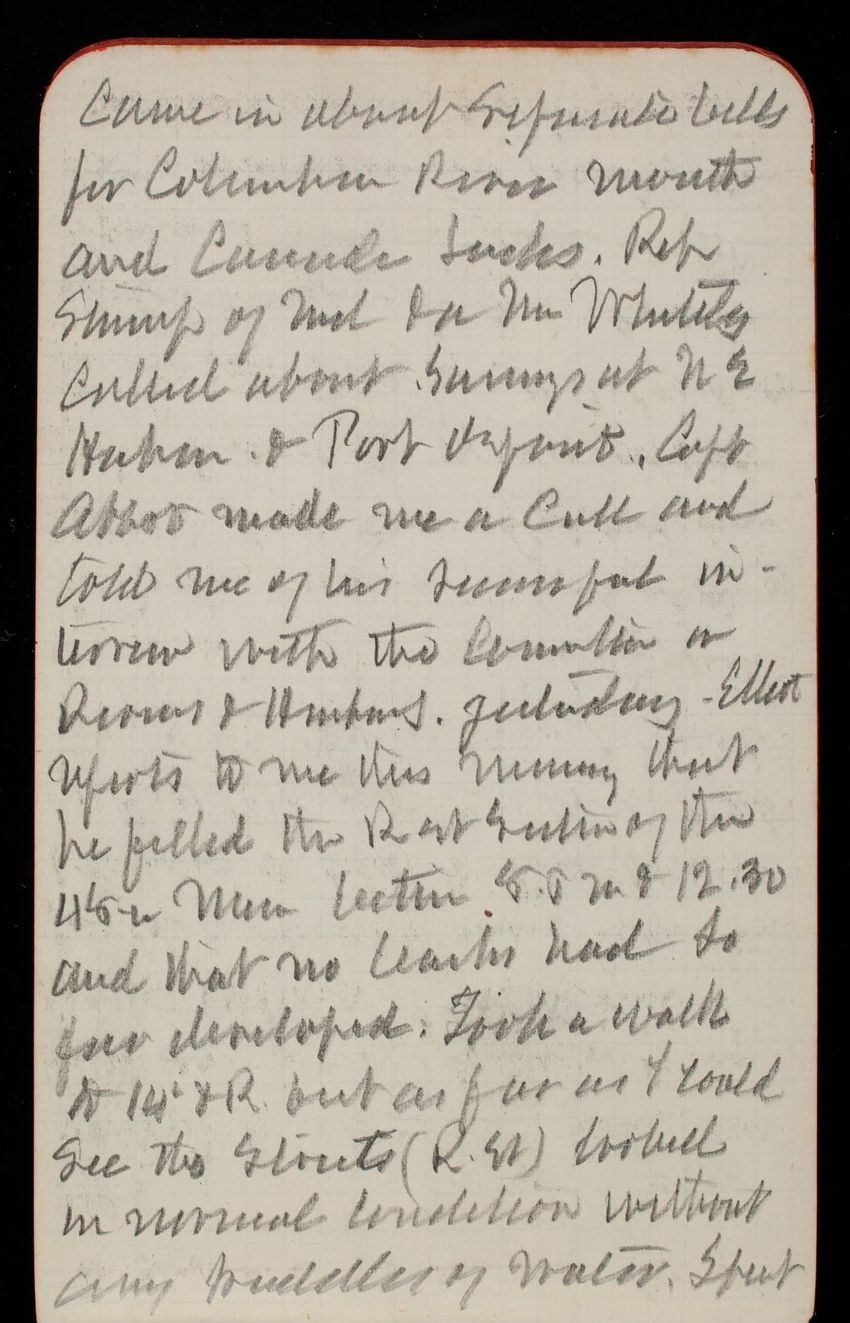 Came in about separate bills
for Columbia River mouth
and Cascade Locks. Rep
Stump of Md & a Mr Whiteley
called about Surveys at N E
Harbor & Port deposit. Capt
Abbot made me a Call and
told me of his successful in-
terview with the Committee on
Rivers & Harbors. yesterday - Elliot
reports to me this morning that
he filled the R est Section of the
48 in Main between & 12.30
and that no leaks had so
far developed. Took a walk
to 14 & R but as far as I could
see the Streets (R. St) looked
in normal condition without
any puddles of water. Spent